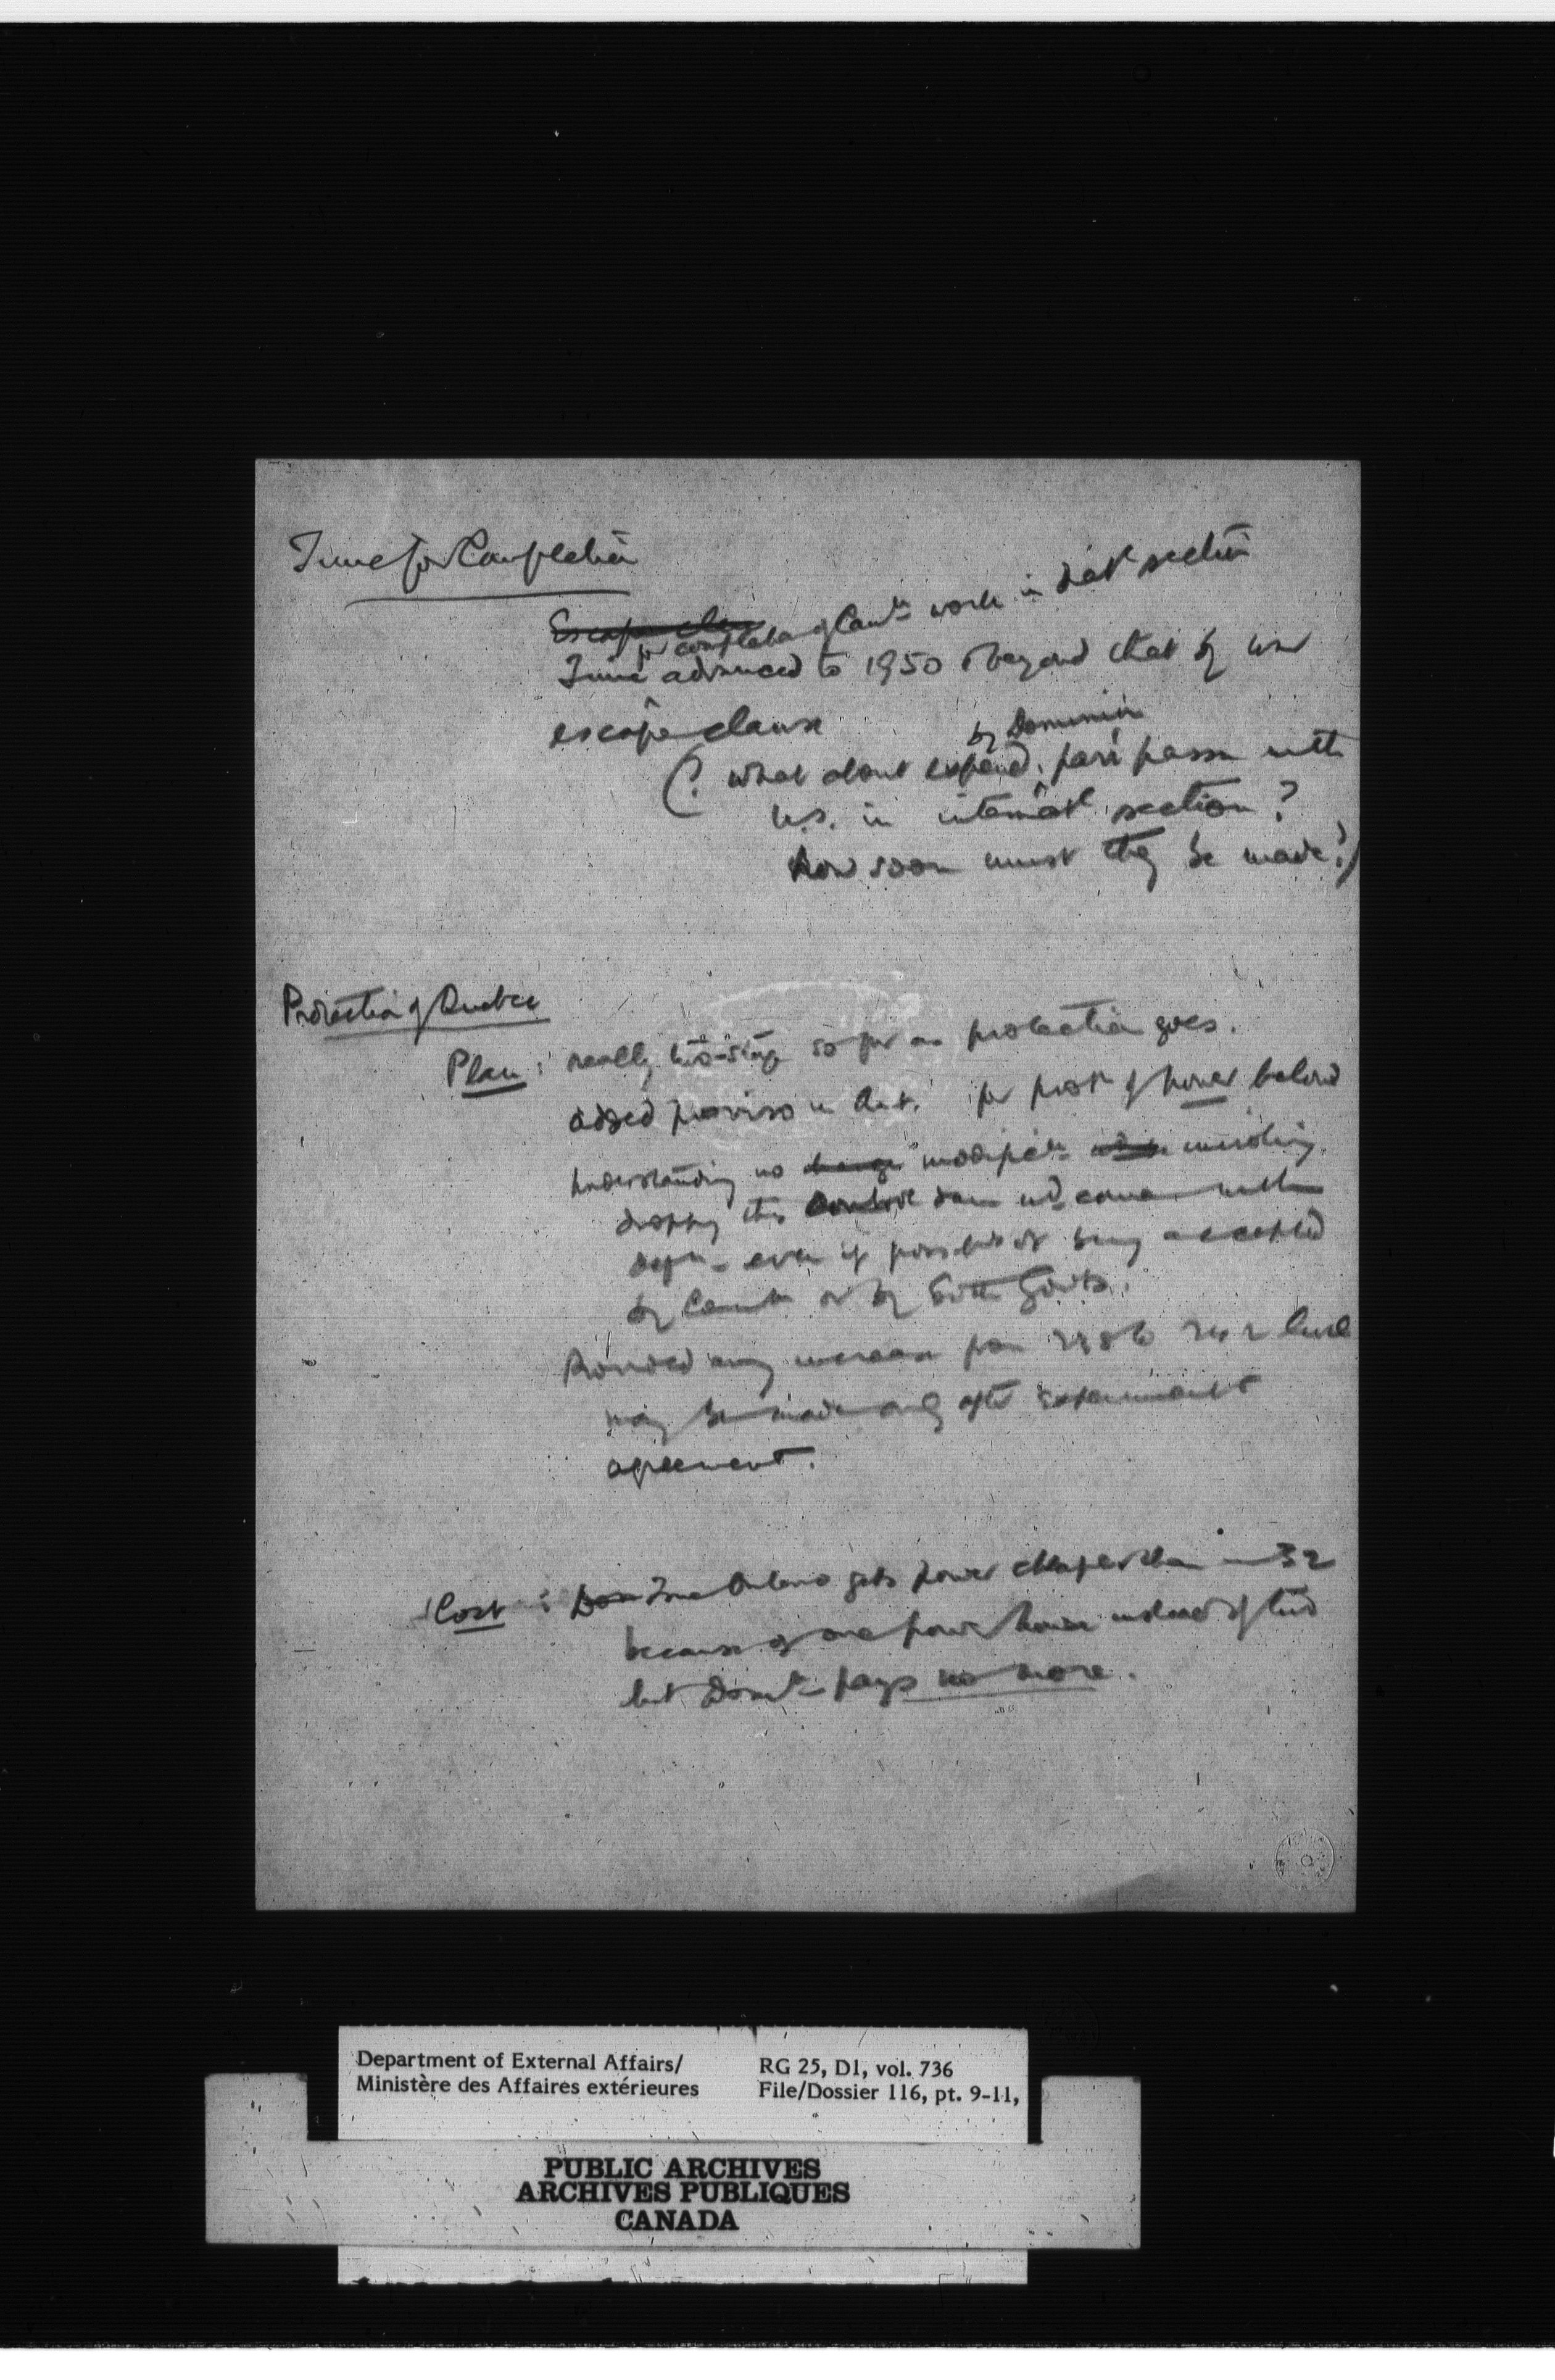 Time for Completion
Escape clau
for completion of Can'n work in Nat'l section
Time advanced to 1950 & beyond that by war
escape clause
by Dominion
(? What about expend. pari passu with
U.S. in internat'l section?
How soon must they be made?)
Protection of Quebec
Plan: really two-stage so far as protection goes.
added proviso in Art. for prot'n of power below
Understanding no change modific'n involving
dropping this control dam
even if being accepted
by or by both Govts.
Provided any increase from level
may be made only after
agreement.
Cost: Dom True Ontario gets power cheaper than in 32
because of one power house instead of two
but Dom'n pays no more.
Department of External Affairs/
Ministère des Affaires extérieures
RG 25, D1, vol. 736
File/Dossier 116, pt. 9-11,
PUBLIC ARCHIVES
ARCHIVES PUBLIQUES
CANADA